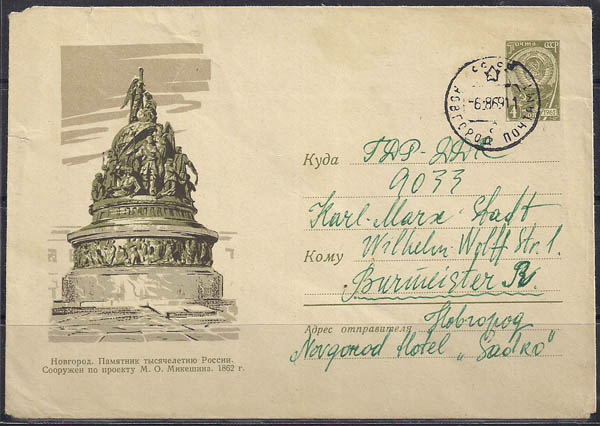 почта СССР
4
1961
СССР
НОВГОРОД ПОЧТАМТ
-6.8.69
Куда ГДР-DDR
9033
Karl-Marx-Stadt
Кому Wilhelm-Wolff Str. 1
Burmeister R.
Адрес отправителя Новгород
Novgorod Hotel „Sadko"
Новгород. Памятник тысячелетию России.
Сооружен по проекту М. О. Микешина. 1862 г.